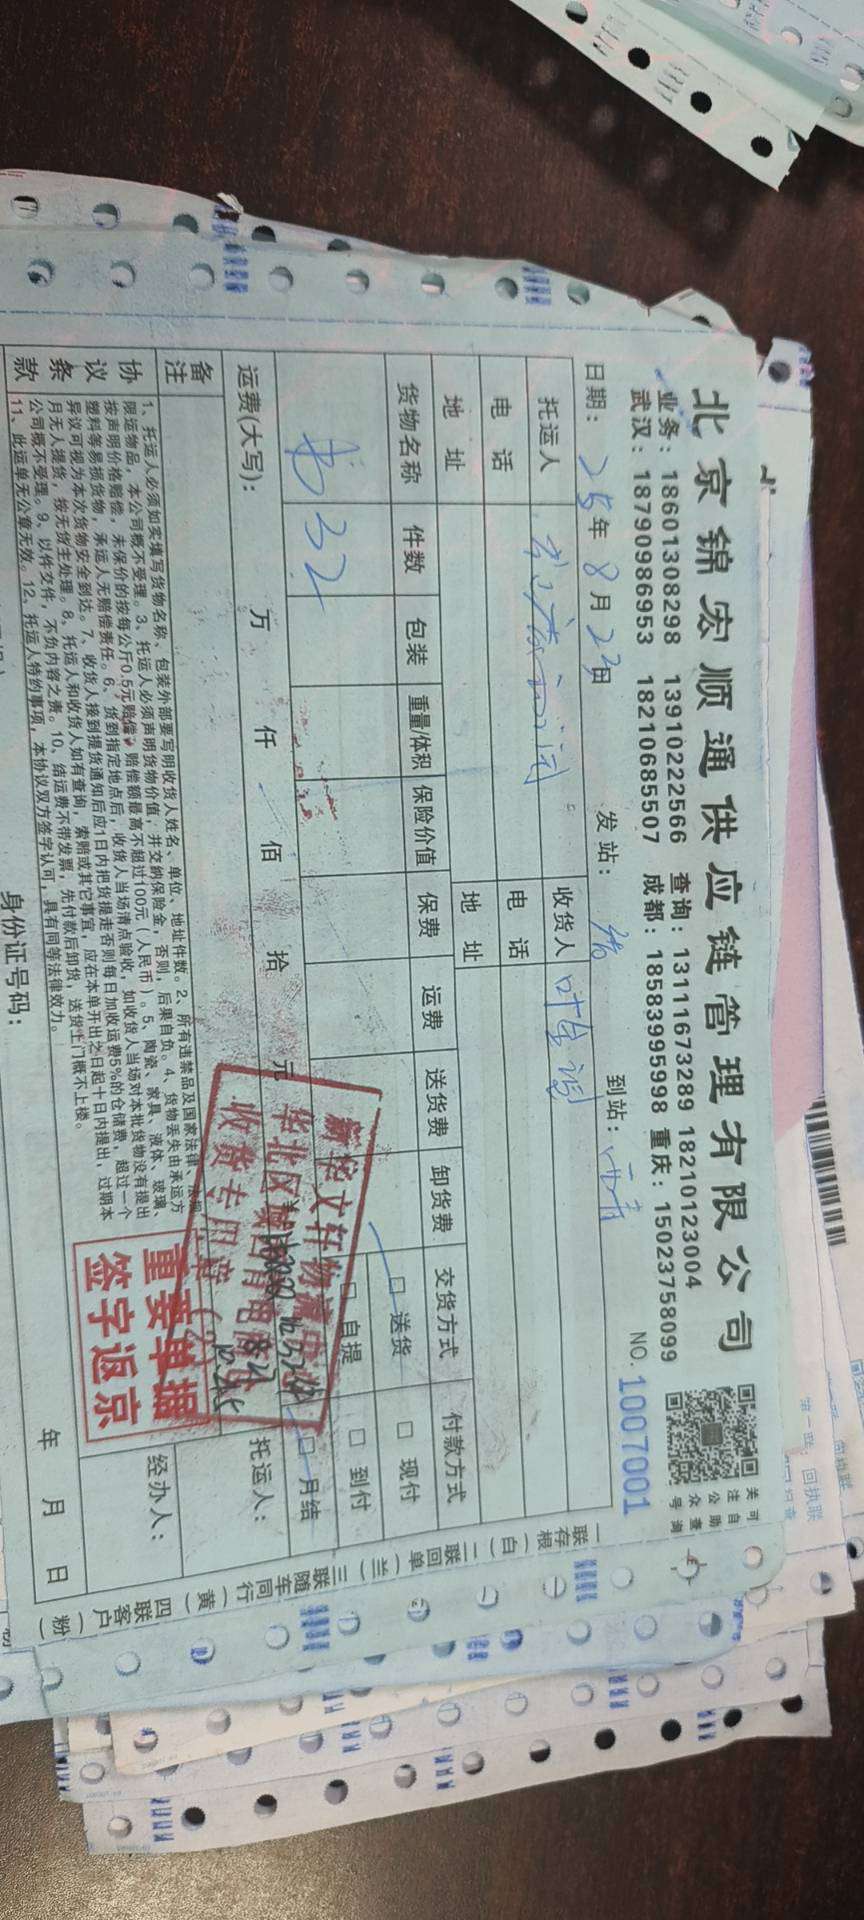 北京錦宏顺通供应链管理有限公司
业务：18601308298 13910222566 查询：13111673289 18210123004
武汉：18790986953 18210685507 成都：18583995998 重庆：15023758099
可自助查询
关注公众号
NO.1007001
日期：25年8月23日 发站： 到站：
托运人 收货人
电话 电话
地址 地址
货物名称 件数 包装 重量/体积 保险价值 保费 运费 送货费 卸货费 交货方式 付款方式
书 32
□ 送货 □ 现付
□ 自提 □ 到付
□ 月结
运费(大写)： 万 仟 佰 拾 元
备注
托运人：
新华文轩物流
华北区
收货专用章(2)
重要单据
签字返京
协议条款
1、托运人必须如实填写货物名称、包装外部要写明收货人姓名、单位、地址件数。2、所有违禁品及国家法律、法规
限运物品，本公司概不受理。3、托运人必须声明货物价值，并交纳保险金，否则，后果自负。4、货物丢失由承运方
按声明价格赔偿，未保价的按每公斤0.5元赔偿，赔偿额最高不超过100元（人民币）。5、陶瓷、家具、液体、玻璃、
塑料等易损货物，承运人无赔偿责任。6、货到指定地点后，收货人当场清点验收，如收货人当场对本批货物没有提出
异议可视为本次货物安全到达。7、收货人接到提货通知后应1日内把货提走否则每日加收运费5%的仓储费，超过一个
月无人提货，按无货主处理。8、托运人和收货人如有查询，索赔或其它事宜，应在本单开出之日起十日内提出，过期本
公司概不受理。9、以件交件，不负内容之责。10、结运费不带发票，先付款后卸货，送货上门概不上楼。
11、此运单无公章无效。12、托运人特约事项，本协议双方签字认可，具有同等法律效力。
经办人：
身份证号码：
年 月 日
一联存根（白）二联回单（兰）三联随车同行（黄）四联客户（粉）
第一联：回执联